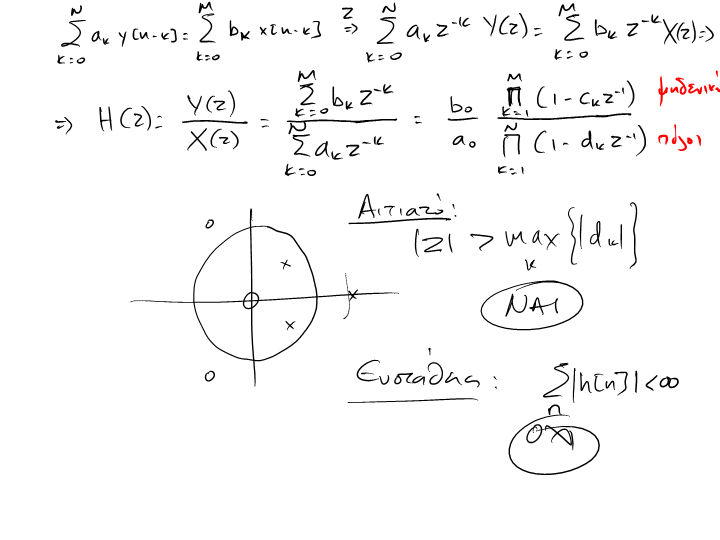 \sum_{k=0}^{N} a_k y[n-k] = \sum_{k=0}^{M} b_k x[n-k] \overset{Z}{\Rightarrow} \sum_{k=0}^{N} a_k z^{-k} Y(z) = \sum_{k=0}^{M} b_k z^{-k} X(z) \Rightarrow
\Rightarrow H(z) = \frac{Y(z)}{X(z)} = \frac{\sum_{k=0}^{M} b_k z^{-k}}{\sum_{k=0}^{N} a_k z^{-k}} = \frac{b_0}{a_0} \frac{\prod_{k=1}^{M} (1 - c_k z^{-1})}{\prod_{k=1}^{N} (1 - d_k z^{-1})} μηδενικά
πόλοι
Αιτιατό:
|z| > \max_k \{|d_k|\}
ΝΑΙ
Ευσταθής: \sum_n |h[n]| < \infty
ΟΧΙ